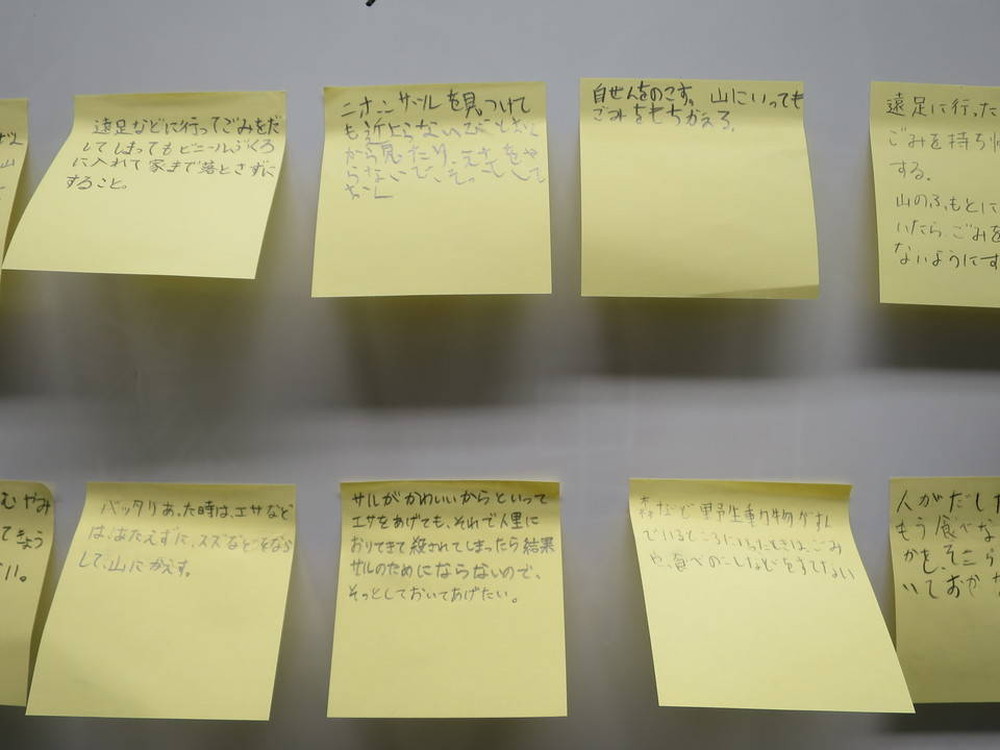 遠足などに行ってごみをだ
してしまってもビニールぶくろ
に入れて家まで落とさずに
すること。
ニホンザルを見つけて
も近よらないで
から見たり、エサをや
らないで、そっとして
自せんをのこす。山にいっても
ごみをもちかえる。
遠足に行った
ごみを持ち帰
する。
山のふもとに
いたら、ごみを
ないようにす
むやみ
てきょう
い。
バッタリあった時は、エサなど
は、あたえずに、スズなどをなら
して、山にかえす。
サルがかわいいからといって
エサをあげても、それで人里に
おりてきて殺されてしまったら結果
サルのためにならないので、
そっとしておいてあげたい。
森などで野生動物がすん
でいるところにいったときは、ごみ
や、食べのこしなどをすてない
人がだした
もう食べな
かを、そこら
いておかな